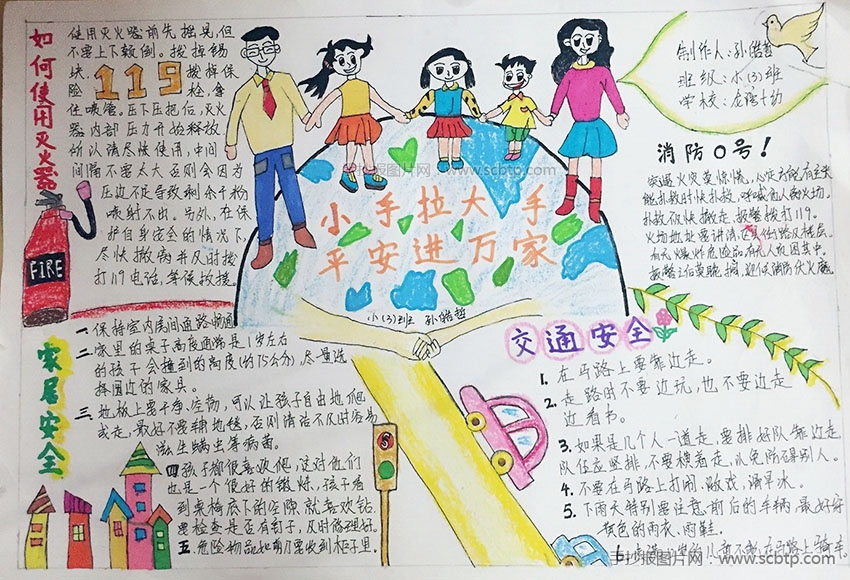 如何使用灭火器
使用灭火器前先摇晃,但
不要上下颠倒。拔掉锡
块,119拔掉保
险栓,拿
住喷管。压下压把后,灭火
器内部压力开始释放
所以请尽快使用,中间
间隔不要太大否则会因为
压力不足导致剩余干粉
喷射不出。另外,在保
护自身安全的情况下,
尽快撤离并及时拨
打119电话,等候救援。
FIRE
小手拉大手
平安进万家
小(3)班 孙皓哲
手抄报图片网:www.scbtp.com
制作人:孙皓哲
班级:小(3)班
学校:
消防0号!
突遇火灾莫惊慌,
扑救很快撤走,报警拨打119。
火场地址要讲清,
家居安全
一、保持室内房间通路畅通
二、家里的桌子高度通常是1岁左右
的孩子会撞到的高度(约75公分),尽量选
择圆边的家具。
三、地板上要干净,空物,可以让孩子自由地爬
或走,最好不要铺地毯,否则清洁不及时容易
滋生螨虫等病菌。
四、孩子都很喜欢爬,这对他们
也是一个很好的锻炼,孩子看
到桌椅底下的空隙就喜欢钻
要检查是否有钉子,及时修理好。
五、危险物品如剪刀要收到柜子里。
交通安全
1. 在马路上要靠边走。
2. 走路时不要边玩,也不要边走
边看书。
3. 如果是几个人一道走,要排好队靠边走
队伍应竖排,不要横着走,以免防碍别人。
4. 不要在马路上打闹、游戏、滑旱冰。
5. 下雨天特别要注意前后的车辆,最好穿
黄色的雨衣、雨鞋。
手抄报图片网:www.scbtp.com